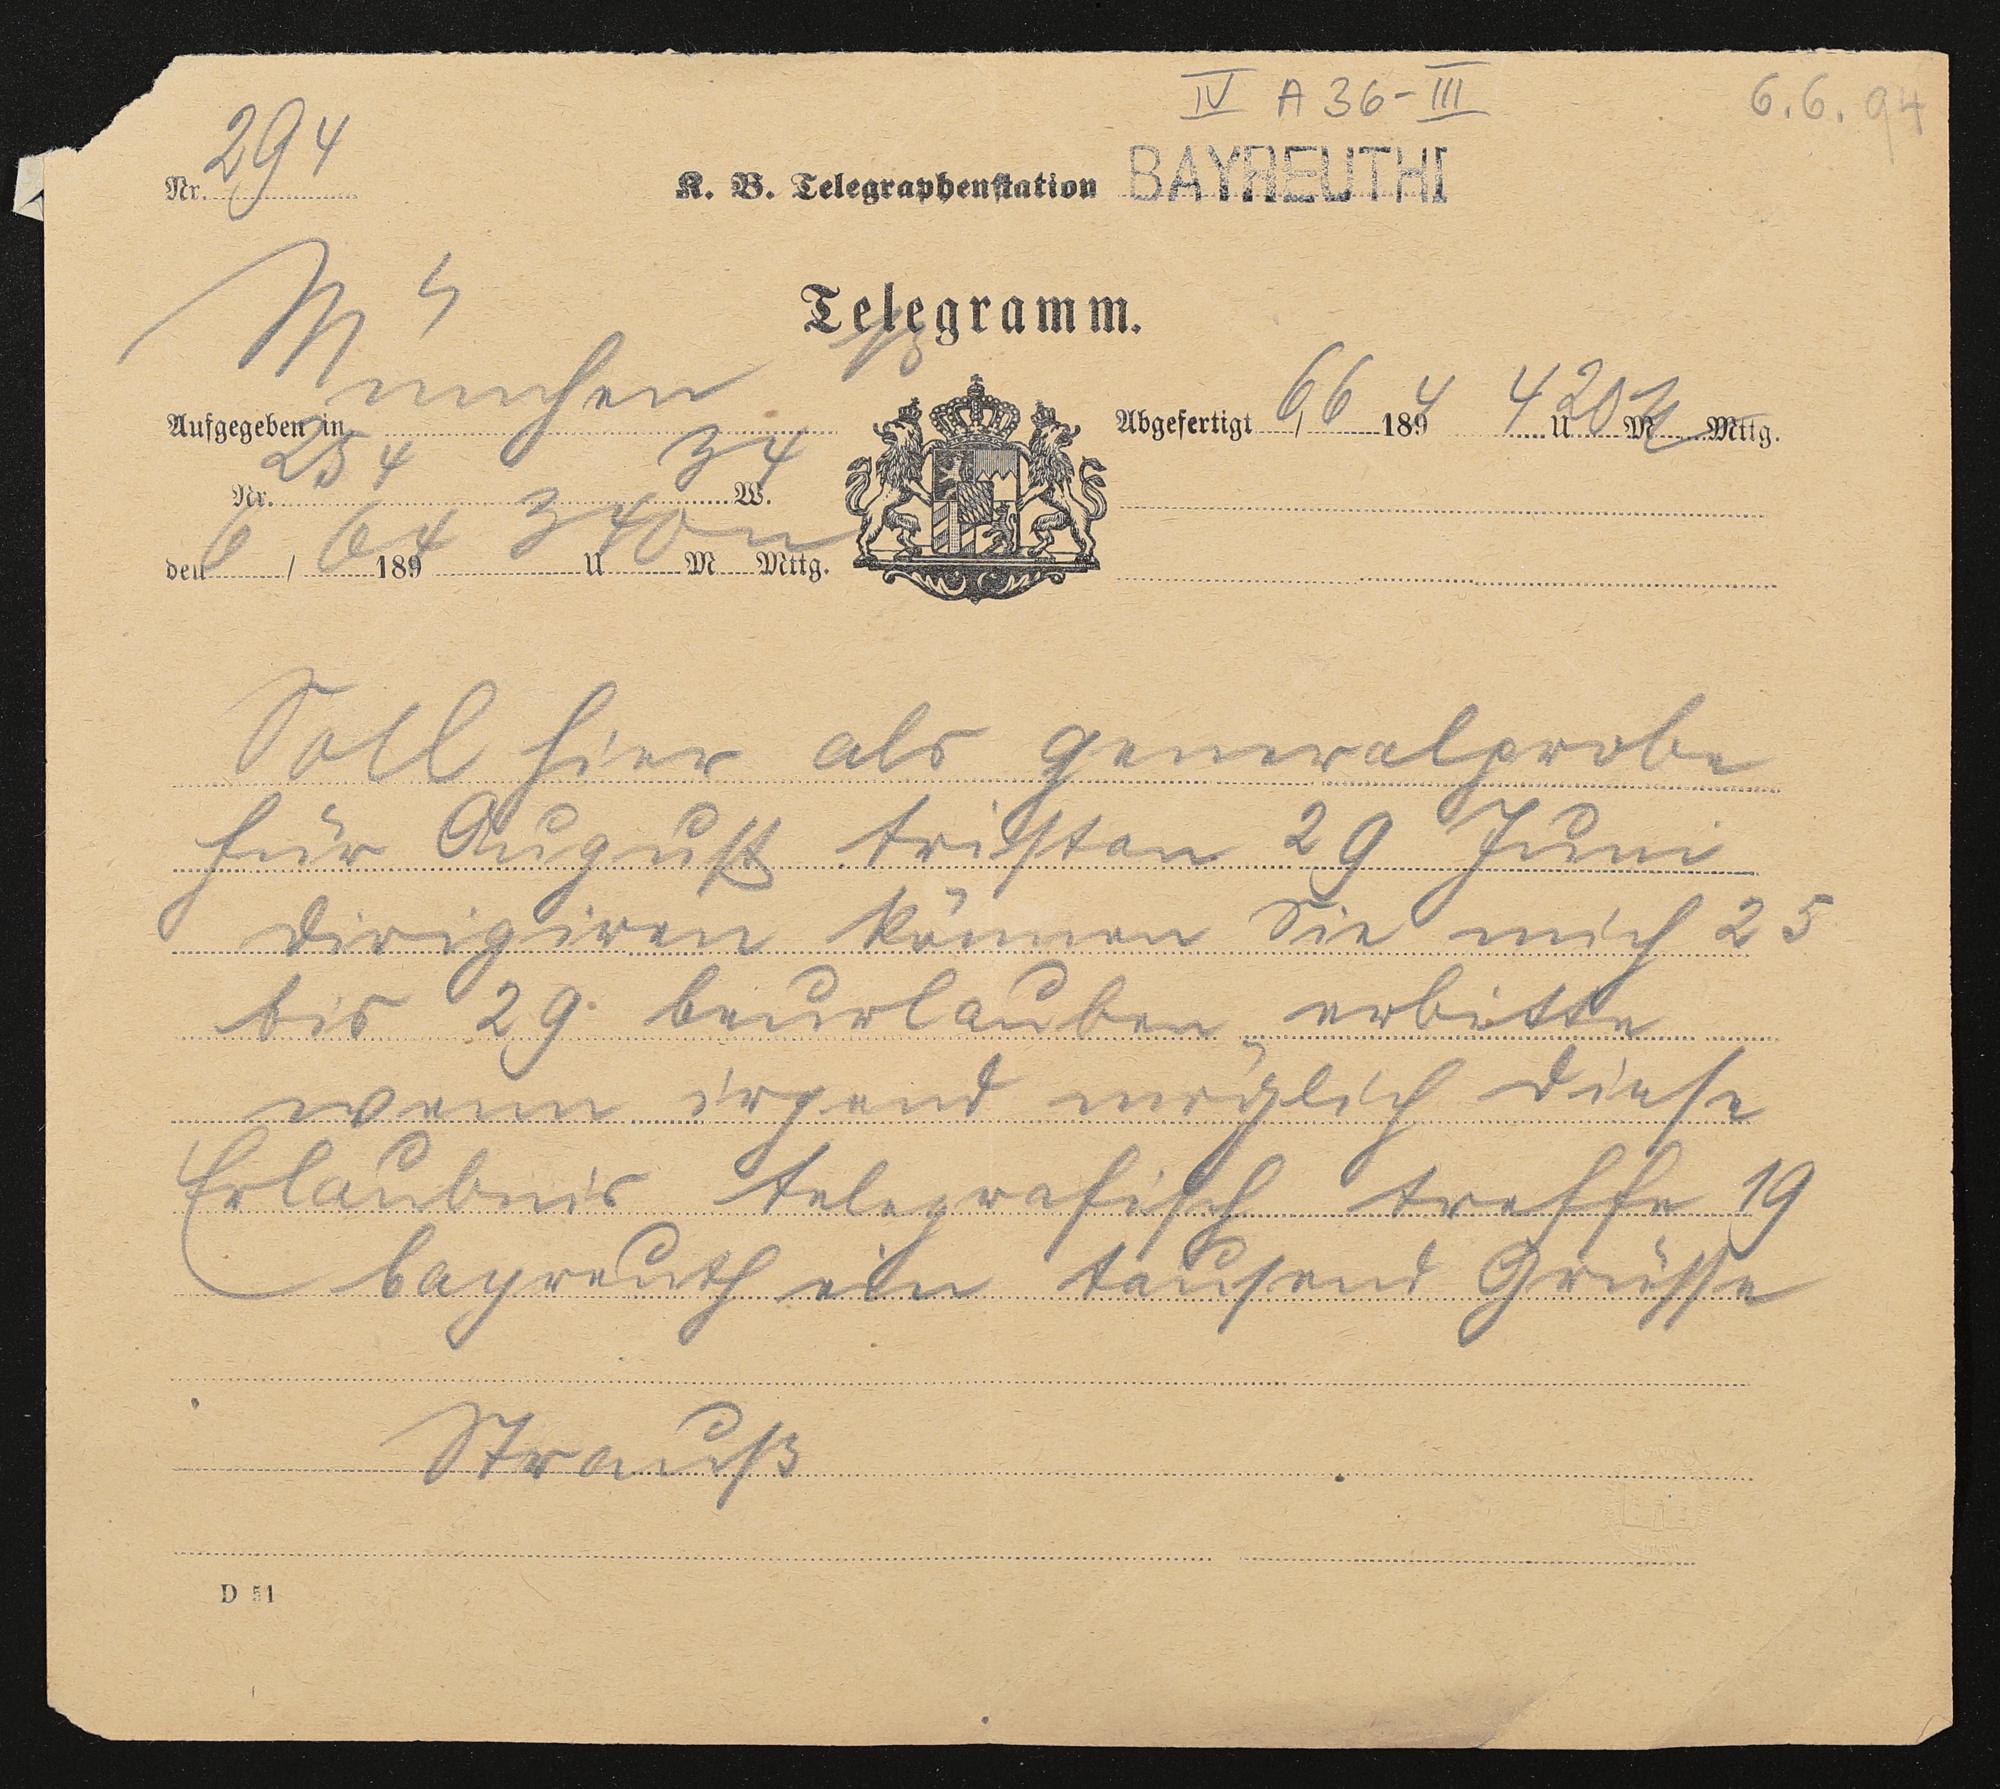 IV A 36-III
6.6.94
Nr. 294
K. B. Telegraphenstation BAYREUTH I
Telegramm.
Aufgegeben in München
Nr. 254 34 W.
den 6 / 6 1894 3 U 40 M n Mttg.
Abgefertigt 6 / 6 1894 4 U 20 M n Mttg.
Soll hier als generalprobe
für August tristan 29 Juni
dirigiren können Sie mich 25
bis 29. beurlauben erbitte
wenn irgend möglich diese
Erlaubnis telegrafisch treffe 19
bayreuth ein tausend Grüsse
Strauß
D 51